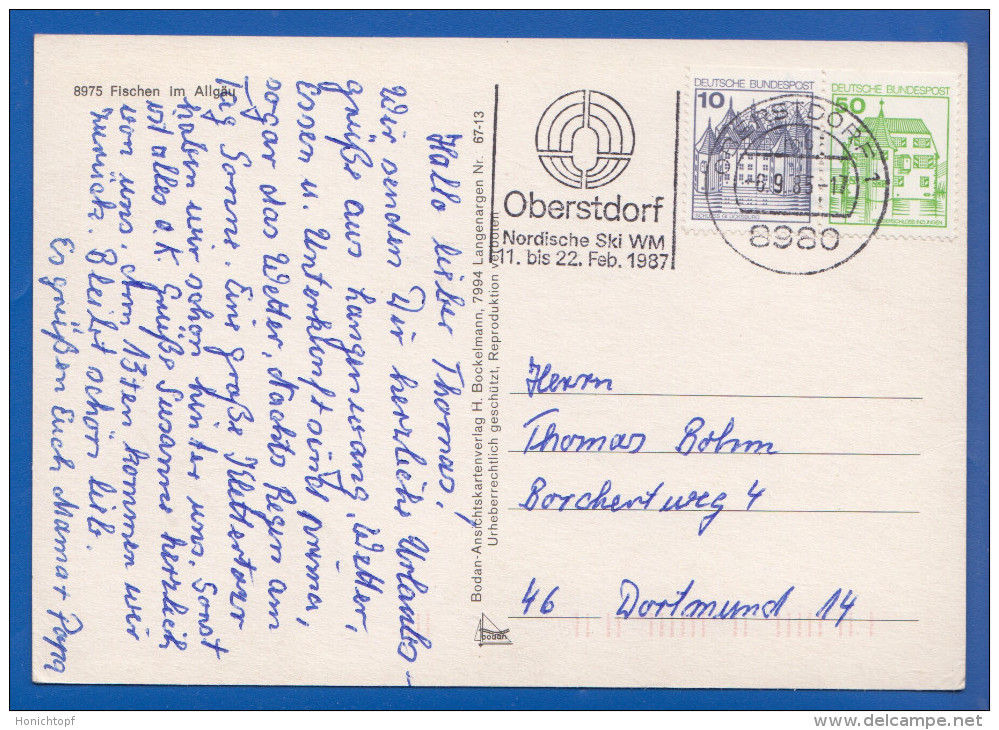 8975 Fischen im Allgäu
Hallo lieber Thomas,
Wir senden Dir herzliche Urlaubs-
grüße aus Langenwang. Wetter,
Essen u. Unterkunft sind prima,
sogar das Wetter, Nachts Regen am
Tag Sonne. Eine große Klettertour
haben wir schon hinter uns. Sonst
ist alles ok. Grüße Susanne herzlich
von uns. Am 13ten kommen wir
zurück. Bleibt schön lieb.
Es grüßen Euch Mama + Papa
Bodan-Ansichtskartenverlag H. Bockelmann, 7994 Langenargen Nr. 67-13
Urheberrechtlich geschützt, Reproduktion verboten
bodan
Oberstdorf
Nordische Ski WM
11. bis 22. Feb. 1987
DEUTSCHE BUNDESPOST
10
SCHLOSS GLÜCKSBURG
DEUTSCHE BUNDESPOST
50
WASSERSCHLOSS INZLINGEN
OBERSTDORF 1
-6.9.85-17
8980
Herrn
Thomas Bohm
Borchertweg 4
46 Dortmund 14
Honichtopf
delcampe.net